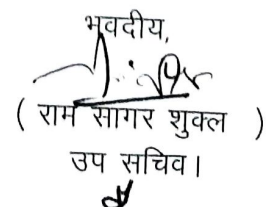 भवदीय,
( राम सागर शुक्ल )
उप सचिव।